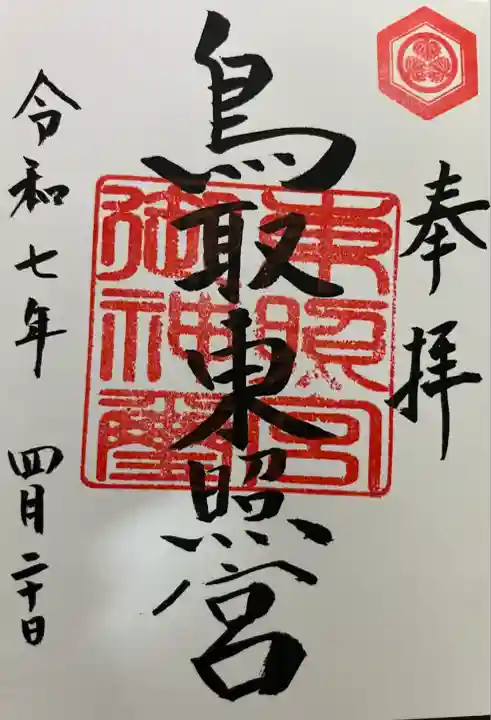 奉拝
鳥取東照宮
東照宮
御神璽
令和七年 四月二十日